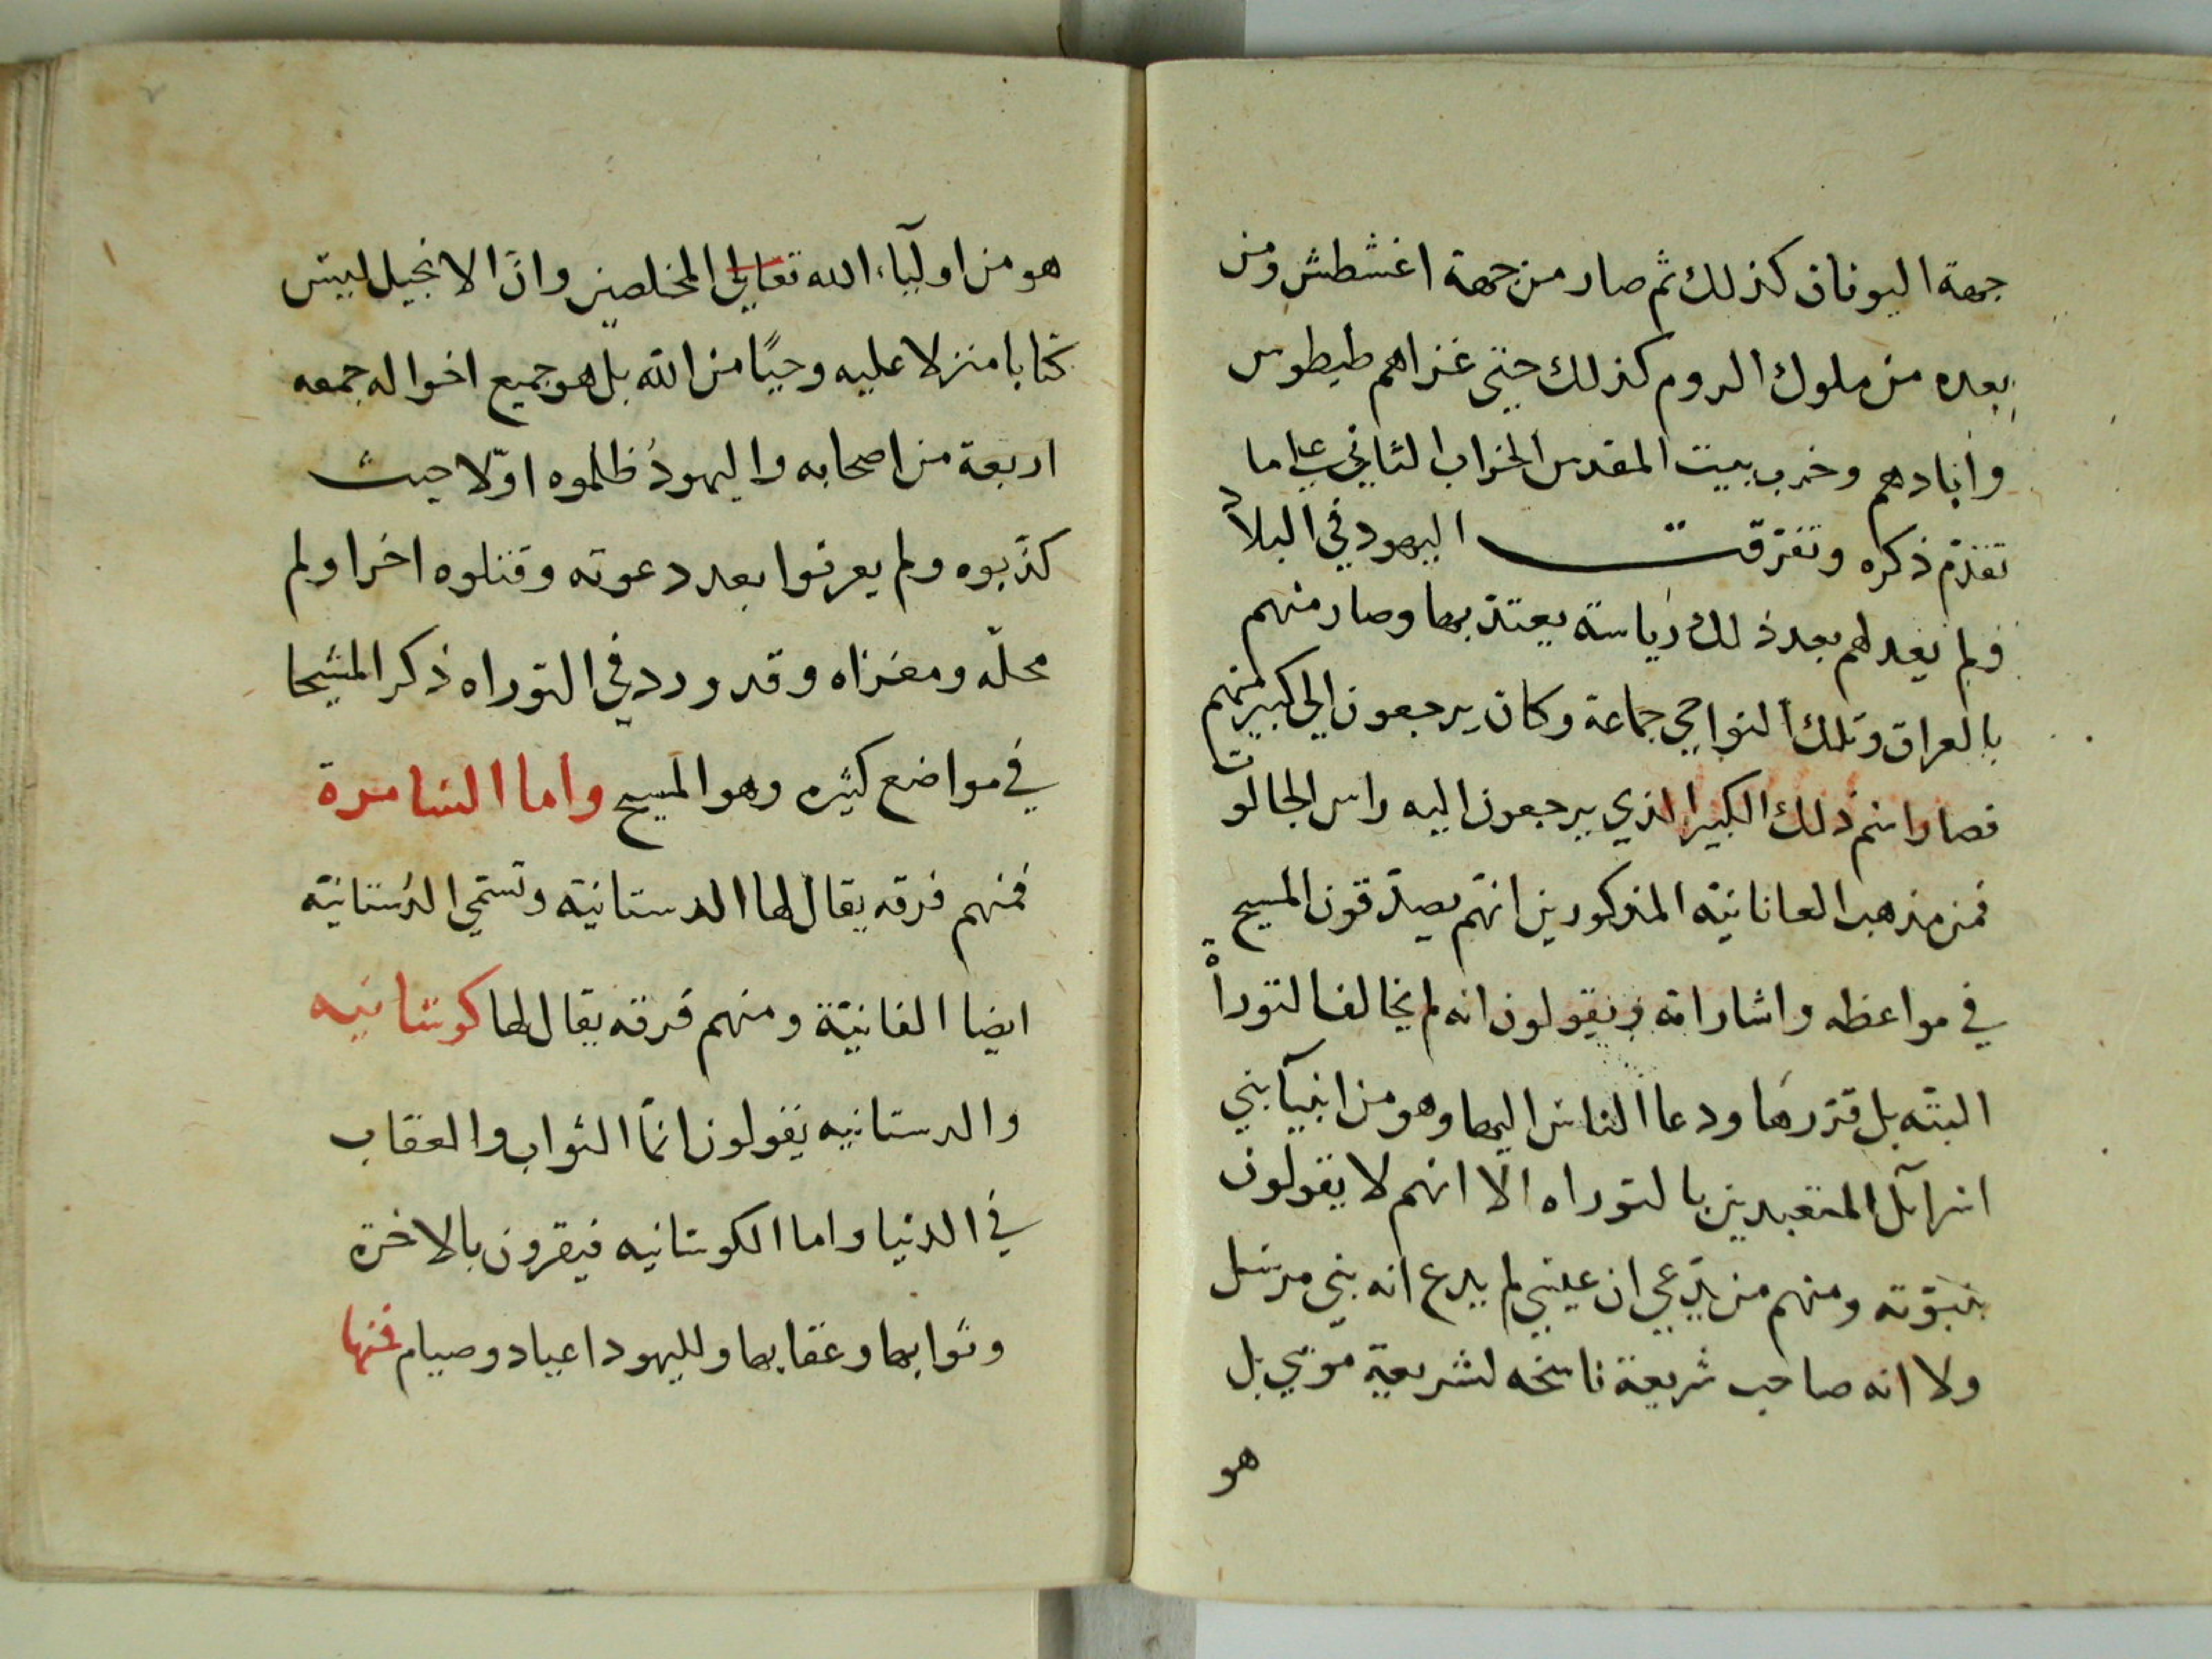 جهة اليونان كذلك ثم صار من جهة اغشطش ومن
بعده من ملوك الروم كذلك حتى غزاهم طيطوس
وابادهم وخرب بيت المقدس الخراب الثاني على ما
تقدم ذكره وتفرقت اليهود في البلاد
ولم يعد لهم بعد ذلك رياسة يعتد بها وصار منهم
بالعراق وتلك النواحي جماعة وكان يرجعون الى كبير منهم
فصار اسم ذلك الكبير الذي يرجعون اليه راس الجالوت
فمن مذهب العانانية المذكورين انهم يصدقون المسيح
في مواعظه واشاراته ويقولون انه لم يخالف التوراة
البتّه بل قررها ودعا الناس اليها وهو من انبيآ بني
اسرآئل المتعبدين بالتوراه الا انهم لا يقولون
بنبوّته ومنهم من يدّعي ان عيسى لم يدع انه نبي مرسل
ولا انه صاحب شريعة ناسخه لشريعة موسى بل
هو
هو من اوليآء الله تعالى المخلصين وانّ الانجيل ليس
كتابا منزلا عليه وحيًا من الله بل هو جميع احواله جمعه
اربعة من اصحابه واليهودُ ظلموه اوّلا حيث
كذّبوه ولم يعرفوا بعد دعوته وقتلوه اخرا ولم
محلّه ومغزاه وقد ورد في التوراه ذكر المشيحا
في مواضع كثيره وهو المسيح واما السامرة
فمنهم فرقه يقال لها الدستانية وتسمى الدستانية
ايضا الفانيّة ومنهم فرقه يقال لها كوستانيه
والدستانيه يقولون انمّا الثواب والعقاب
في الدنيا واما الكوستانيه فيقرون بالاخرة
وثوابها وعقابها ولليهود اعياد وصيام فمنها